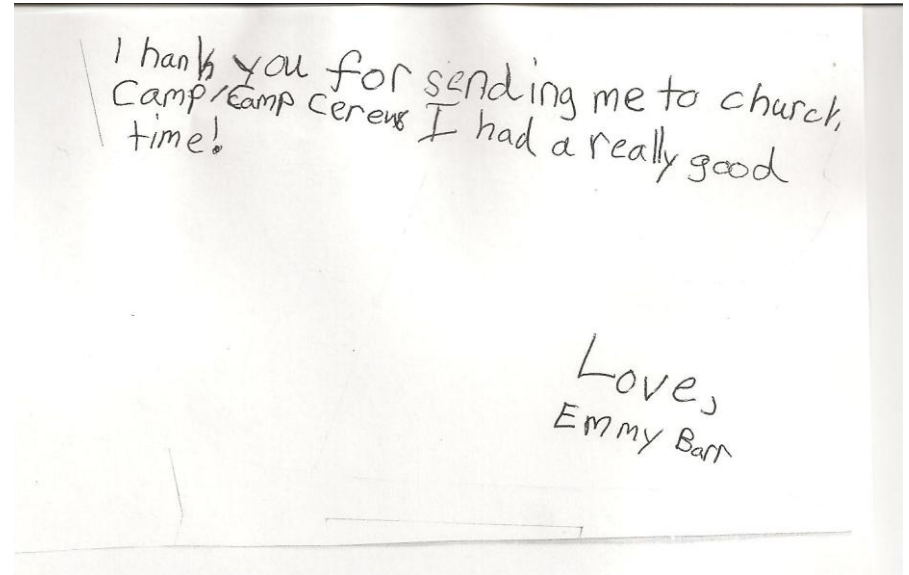 Thank you for sending me to church,
Camp/Camp Cereus I had a really good
time!
Love,
Emmy Barr